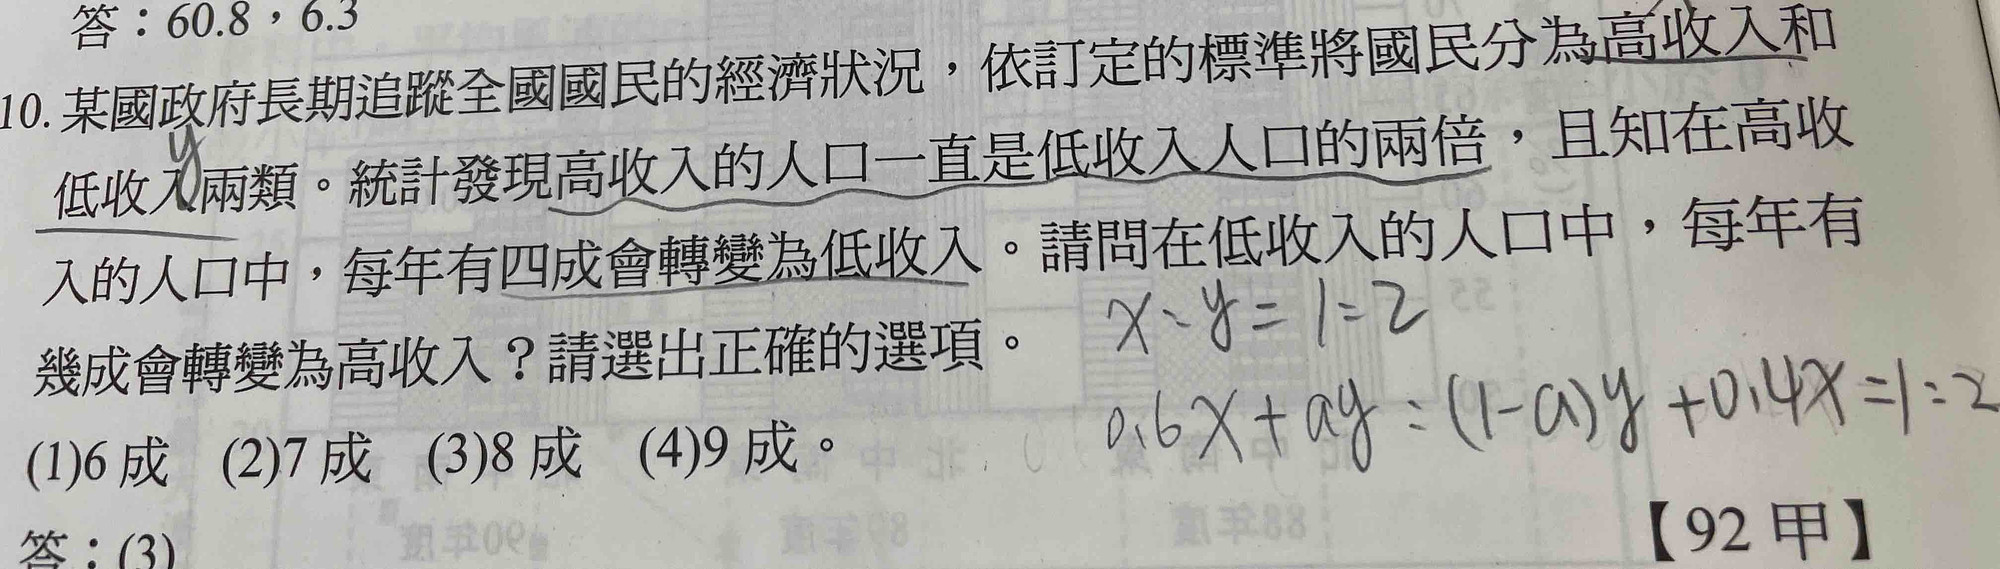 答：60.8，6.3
10.某國政府長期追蹤全國國民的經濟狀況，依訂定的標準將國民分為高收入和
y
低收入兩類。統計發現高收入的人口一直是低收入人口的兩倍，且知在高收
入的人口中，每年有四成會轉變為低收入。請問在低收入的人口中，每年有
幾成會轉變為高收入？請選出正確的選項。
x:y=1:2
(1)6成 (2)7成 (3)8成 (4)9成。
0.6x+ay:(1-a)y+0.4x=1:2
【92 甲】
答：(3)